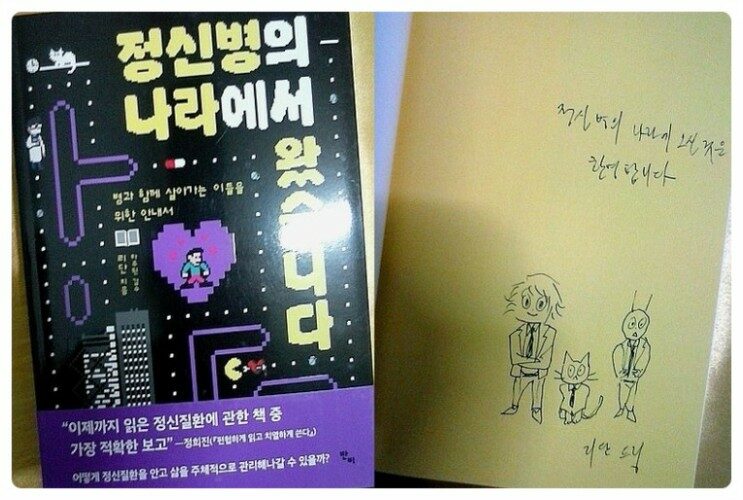 정신병의
나라에서
왔습니다
병과 함께 살아가는 이들을
위한 안내서
리단 지음
하주원 감수
“이제까지 읽은 정신질환에 관한 책 중
가장 적확한 보고” —정희진(『편협하게 읽고 치열하게 쓴다』)
어떻게 정신질환을 안고 삶을 주체적으로 관리해나갈 수 있을까?
반비
정신병의 나라에 오신 것을
환영합니다
리단 드림